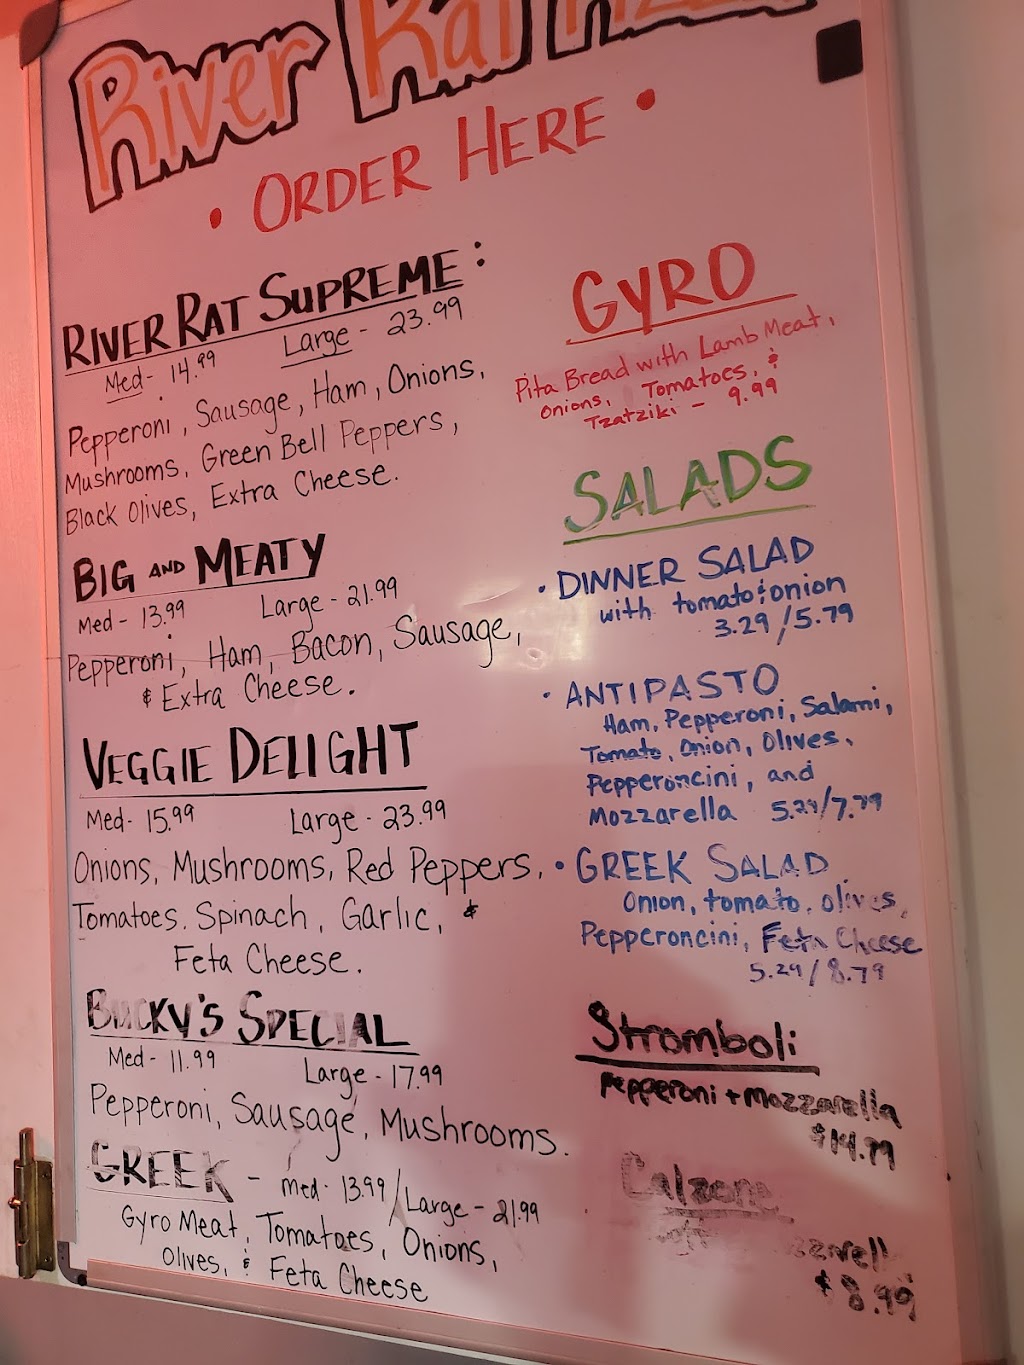 River Rat Pizza
• ORDER HERE •
RIVER RAT SUPREME:
Med- 14.99 Large - 23.99
Pepperoni, Sausage, Ham, Onions,
Mushrooms, Green Bell Peppers,
Black Olives, Extra Cheese.
BIG AND MEATY
Med - 13.99 Large - 21.99
Pepperoni, Ham, Bacon, Sausage,
& Extra Cheese.
VEGGIE DELIGHT
Med- 15.99 Large - 23.99
Onions, Mushrooms, Red Peppers,
Tomatoes. Spinach, Garlic, &
Feta Cheese.
BUCKY'S SPECIAL
Med- 11.99 Large - 17.99
Pepperoni, Sausage, Mushrooms.
GREEK - med- 13.99/Large - 21.99
Gyro Meat, Tomatoes, Onions,
Olives, & Feta Cheese
GYRO
Pita Bread with Lamb Meat,
Onions, Tomatoes, &
Tzatziki - 9.99
SALADS
• DINNER SALAD
with tomato & onion
3.29/5.79
• ANTIPASTO
Ham, Pepperoni, Salami,
Tomato, Onion, Olives,
Pepperoncini, and
Mozzarella 5.29/7.79
• GREEK SALAD
Onion, tomato, olives,
Pepperoncini, Feta Cheese
5.29/8.79
Stromboli
Pepperoni + Mozzarella
$14.99
Calzone
$8.99